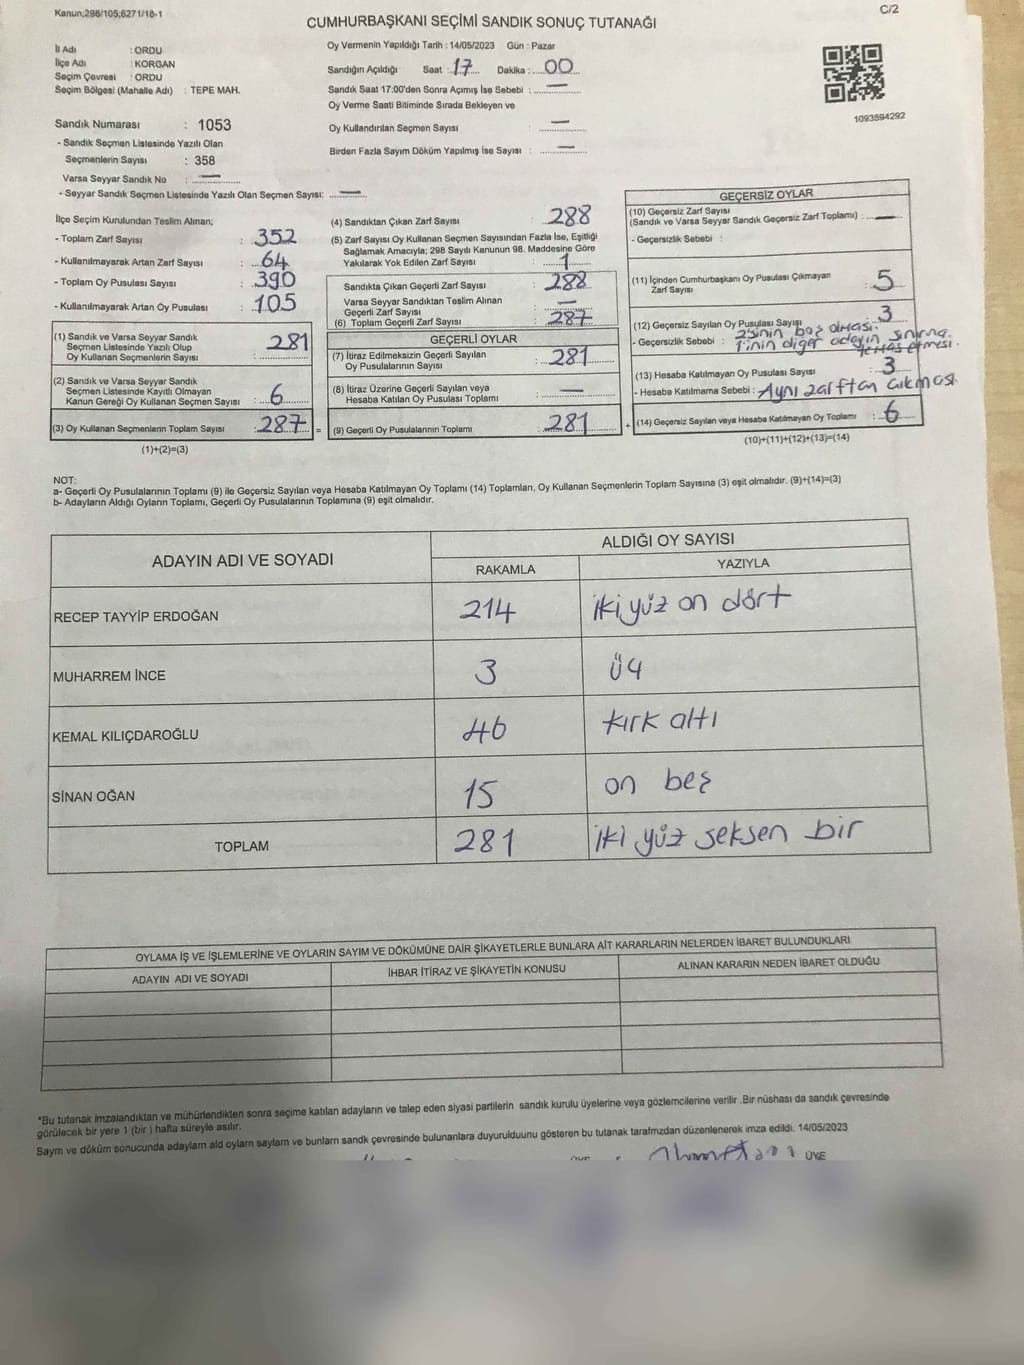 Kanun;298/105;6271/18-1
C/2
CUMHURBAŞKANI SEÇİMİ SANDIK SONUÇ TUTANAĞI
İl Adı : ORDU
İlçe Adı : KORGAN
Seçim Çevresi : ORDU
Seçim Bölgesi (Mahalle Adı) : TEPE MAH.
Oy Vermenin Yapıldığı Tarih : 14/05/2023 Gün : Pazar
Sandığın Açıldığı Saat : 17 Dakika : 00
Sandık Saat 17:00'den Sonra Açımış İse Sebebi : —
Oy Verme Saati Bitiminde Sırada Bekleyen ve
Oy Kullandırılan Seçmen Sayısı —
Birden Fazla Sayım Döküm Yapılmış İse Sayısı : —
1093594292
Sandık Numarası : 1053
- Sandık Seçmen Listesinde Yazılı Olan
Seçmenlerin Sayısı : 358
Varsa Seyyar Sandık No : —
- Seyyar Sandık Seçmen Listesinde Yazılı Olan Seçmen Sayısı: —
İlçe Seçim Kurulundan Teslim Alınan;
- Toplam Zarf Sayısı : 352
- Kullanılmayarak Artan Zarf Sayısı : 64
- Toplam Oy Pusulası Sayısı : 390
- Kullanılmayarak Artan Oy Pusulası : 105
(1) Sandık ve Varsa Seyyar Sandık
Seçmen Listesinde Yazılı Olup
Oy Kullanan Seçmenlerin Sayısı : 281
(2) Sandık ve Varsa Seyyar Sandık
Seçmen Listesinde Kayıtlı Olmayan
Kanun Gereği Oy Kullanan Seçmen Sayısı : 6
(3) Oy Kullanan Seçmenlerin Toplam Sayısı : 287 =
(1)+(2)=(3)
(4) Sandıktan Çıkan Zarf Sayısı : 288
(5) Zarf Sayısı Oy Kullanan Seçmen Sayısından Fazla İse, Eşitliği
Sağlamak Amacıyla; 298 Sayılı Kanunun 98. Maddesine Göre
Yakılarak Yok Edilen Zarf Sayısı : 1
Sandıkta Çıkan Geçerli Zarf Sayısı : 288
Varsa Seyyar Sandıktan Teslim Alınan
Geçerli Zarf Sayısı : —
(6) Toplam Geçerli Zarf Sayısı : 287
GEÇERLİ OYLAR
(7) İtiraz Edilmeksizin Geçerli Sayılan
Oy Pusulalarının Sayısı : 281
(8) İtiraz Üzerine Geçerli Sayılan veya
Hesaba Katılan Oy Pusulası Toplamı : —
(9) Geçerli Oy Pusulalarının Toplamı : 281 +
GEÇERSİZ OYLAR
(10) Geçersiz Zarf Sayısı
(Sandık ve Varsa Seyyar Sandık Geçersiz Zarf Toplamı) : —
- Geçersizlik Sebebi :
(11) İçinden Cumhurbaşkanı Oy Pusulası Çıkmayan
Zarf Sayısı : 5
(12) Geçersiz Sayılan Oy Pusulası Sayısı : 3
- Geçersizlik Sebebi : 2'sinin boş olması.
1'inin diğer adayın sınırına
(13) Hesaba Katılmayan Oy Pusulası Sayısı : 3
- Hesaba Katılmama Sebebi : Aynı zarftan çıkması
(14) Geçersiz Sayılan veya Hesaba Katılmayan Oy Toplamı : 6
(10)+(11)+(12)+(13)=(14)
NOT:
a- Geçerli Oy Pusulalarının Toplamı (9) ile Geçersiz Sayılan veya Hesaba Katılmayan Oy Toplamı (14) Toplamları, Oy Kullanan Seçmenlerin Toplam Sayısına (3) eşit olmalıdır. (9)+(14)=(3)
b- Adayların Aldığı Oyların Toplamı, Geçerli Oy Pusulalarının Toplamına (9) eşit olmalıdır.
ADAYIN ADI VE SOYADI ALDIĞI OY SAYISI
RAKAMLA YAZIYLA
RECEP TAYYİP ERDOĞAN 214 iki yüz on dört
MUHARREM İNCE 3 üç
KEMAL KILIÇDAROĞLU 46 kırk altı
SİNAN OĞAN 15 on beş
TOPLAM 281 iki yüz seksen bir
OYLAMA İŞ VE İŞLEMLERİNE VE OYLARIN SAYIM VE DÖKÜMÜNE DAİR ŞİKAYETLERLE BUNLARA AİT KARARLARIN NELERDEN İBARET BULUNDUKLARI
ADAYIN ADI VE SOYADI İHBAR İTİRAZ VE ŞİKAYETİN KONUSU ALINAN KARARIN NEDEN İBARET OLDUĞU
*Bu tutanak imzalandıktan ve mühürlendikten sonra seçime katılan adayların ve talep eden siyasi partilerin sandık kurulu üyelerine veya gözlemcilerine verilir .Bir nüshası da sandık çevresinde
görülecek bir yere 1 (bir ) hafta süreyle asılır.
Saym ve döküm sonucunda adaylarn ald oylarn saylarn ve bunlarn sandk çevresinde bulunanlara duyurulduunu gösteren bu tutanak tarafmzdan düzenlenerek imza edildi. 14/05/2023
ÜYE